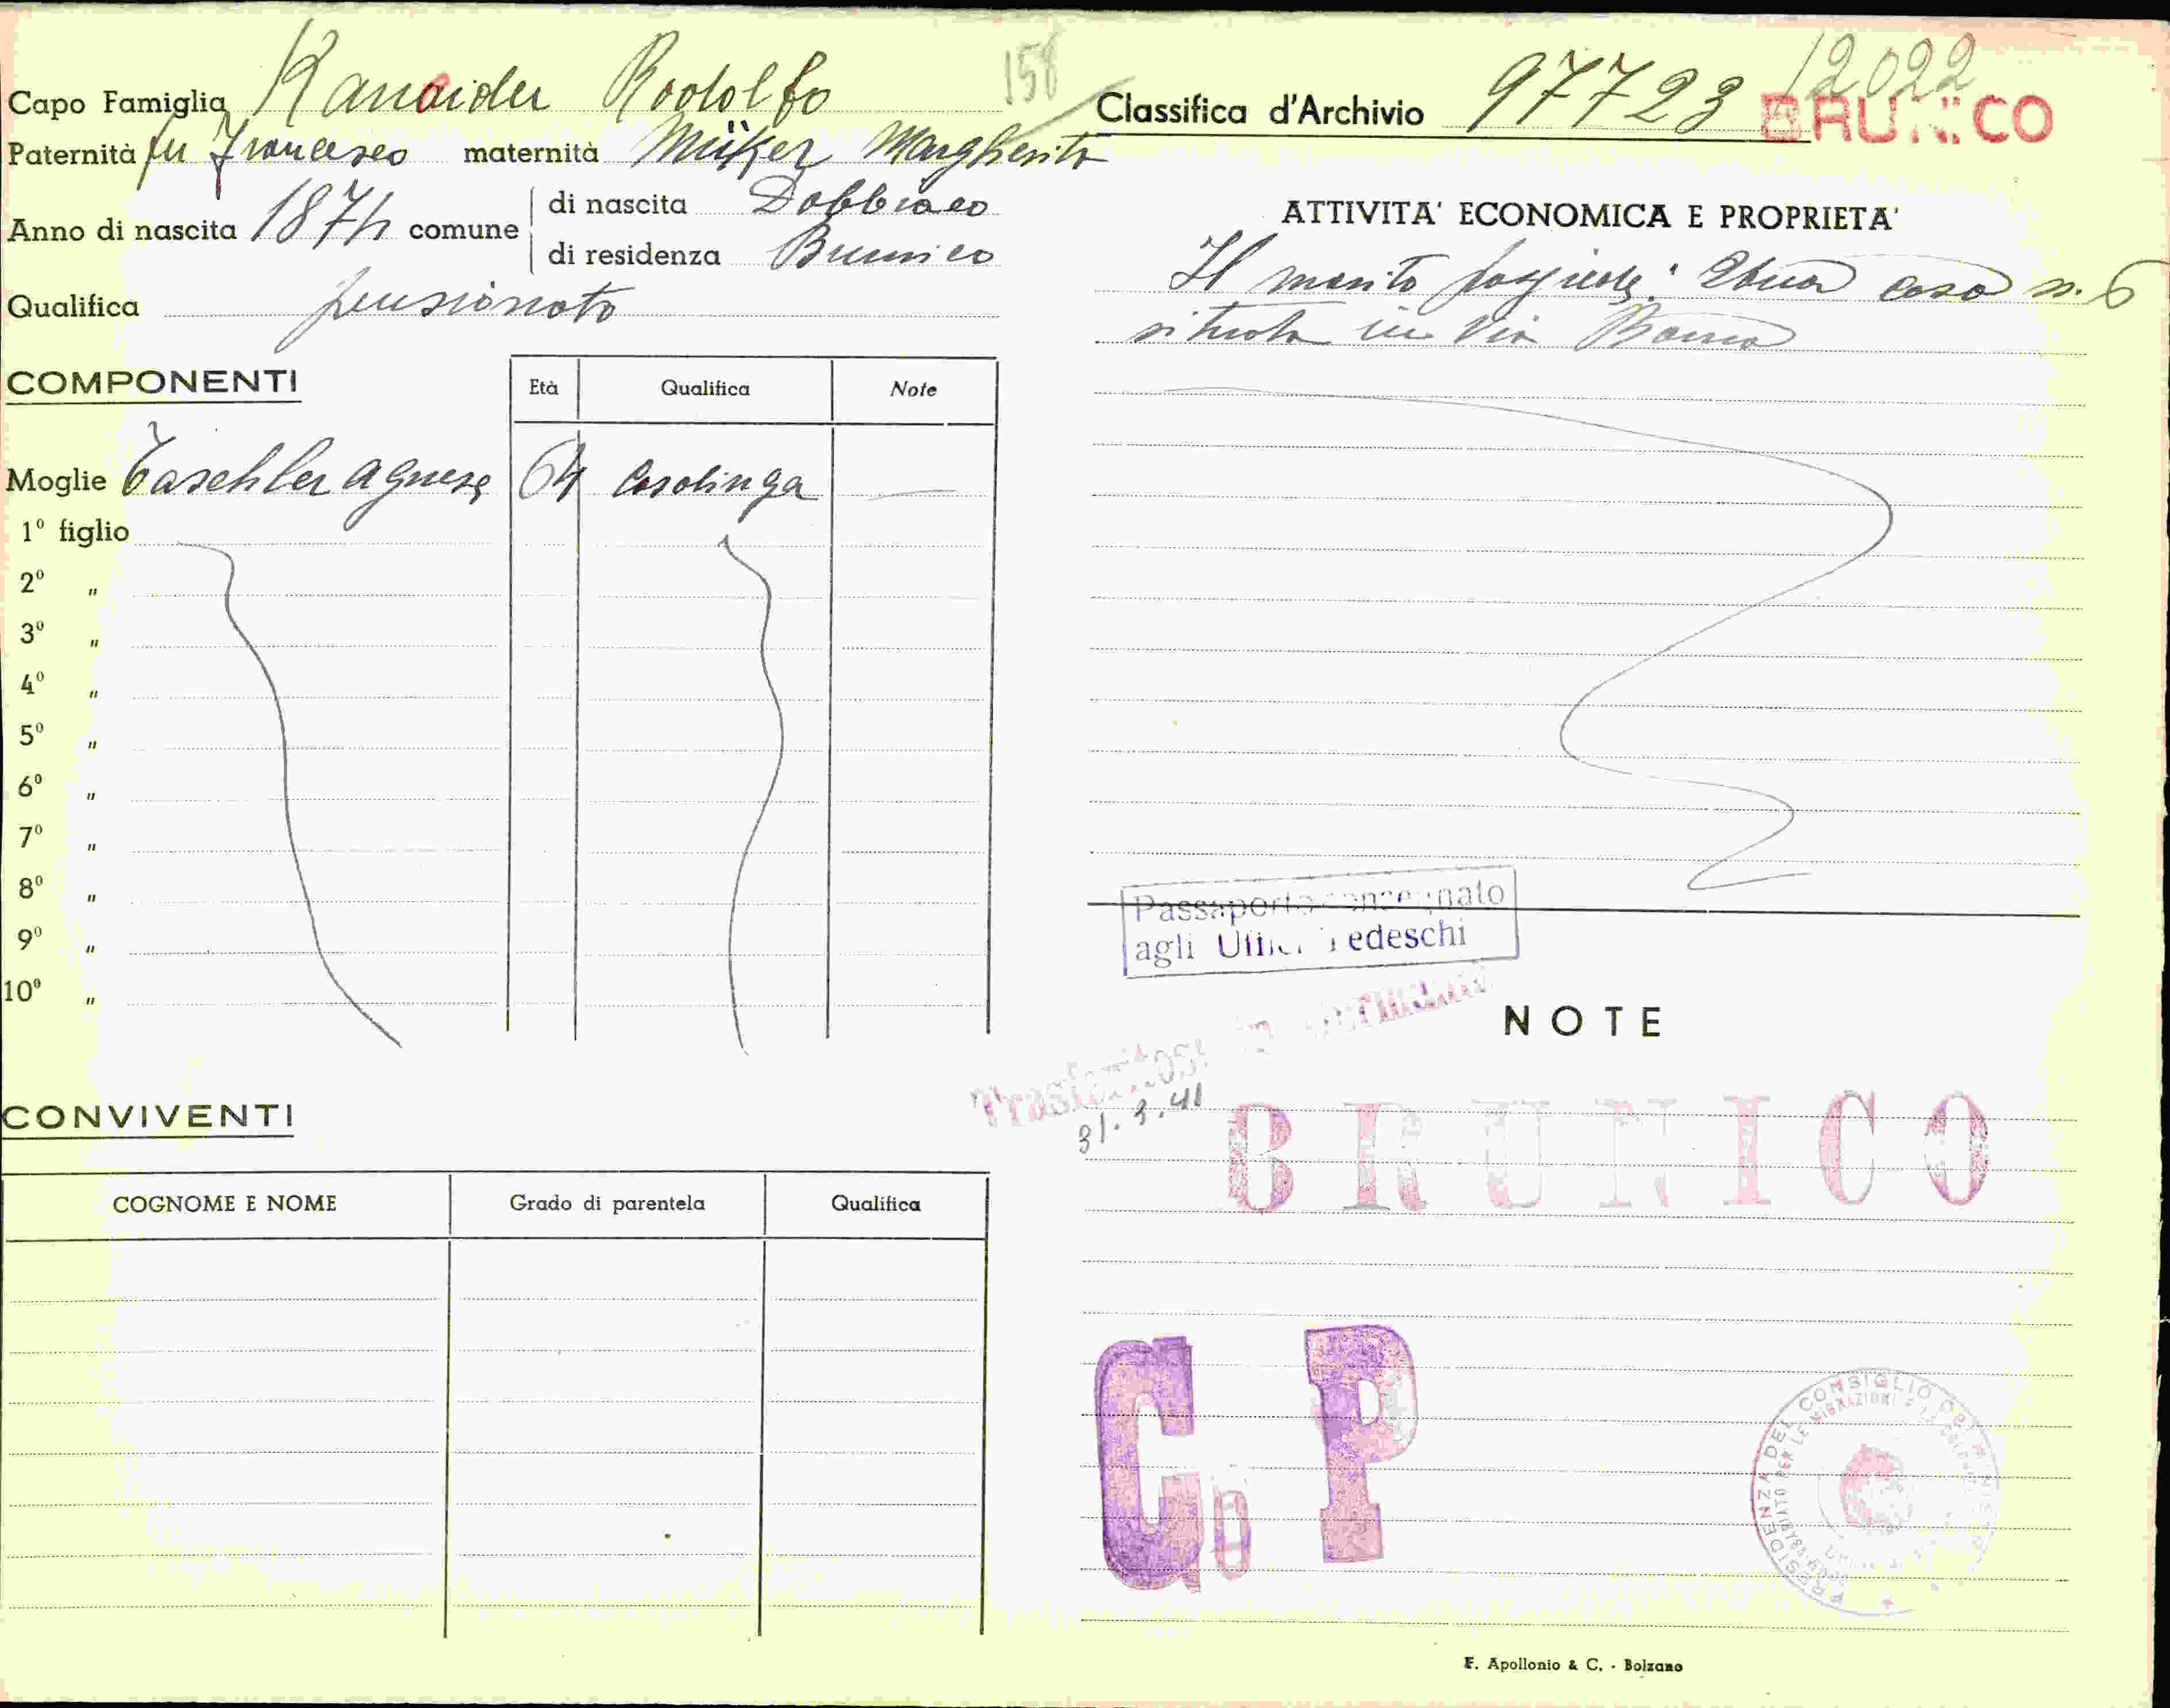 Capo Famiglia Kanaider Rodolfo 158
Paternità fu Francesco maternità Müker Margherita
Anno di nascita 1874 comune di nascita Dobbiaco
di residenza Brunico
Qualifica pensionato
COMPONENTI Età Qualifica Note
Moglie Taschler Agnese 64 Casalinga —
1° figlio
2° "
3° "
4° "
5° "
6° "
7° "
8° "
9° "
10° "
CONVIVENTI
COGNOME E NOME Grado di parentela Qualifica
Classifica d'Archivio 97723 12022
BRUNICO
ATTIVITA' ECONOMICA E PROPRIETA'
Il marito possiede: casa n. 6
situata in Via
Passaporto consegnato
agli Uffici Tedeschi
Trasferitosi in Germania
31.3.41
NOTE
BRUNICO
G D P
PRESIDENZA DEL CONSIGLIO DEI MINISTRI
PER LE MIGRAZIONI
F. Apollonio & C. - Bolzano